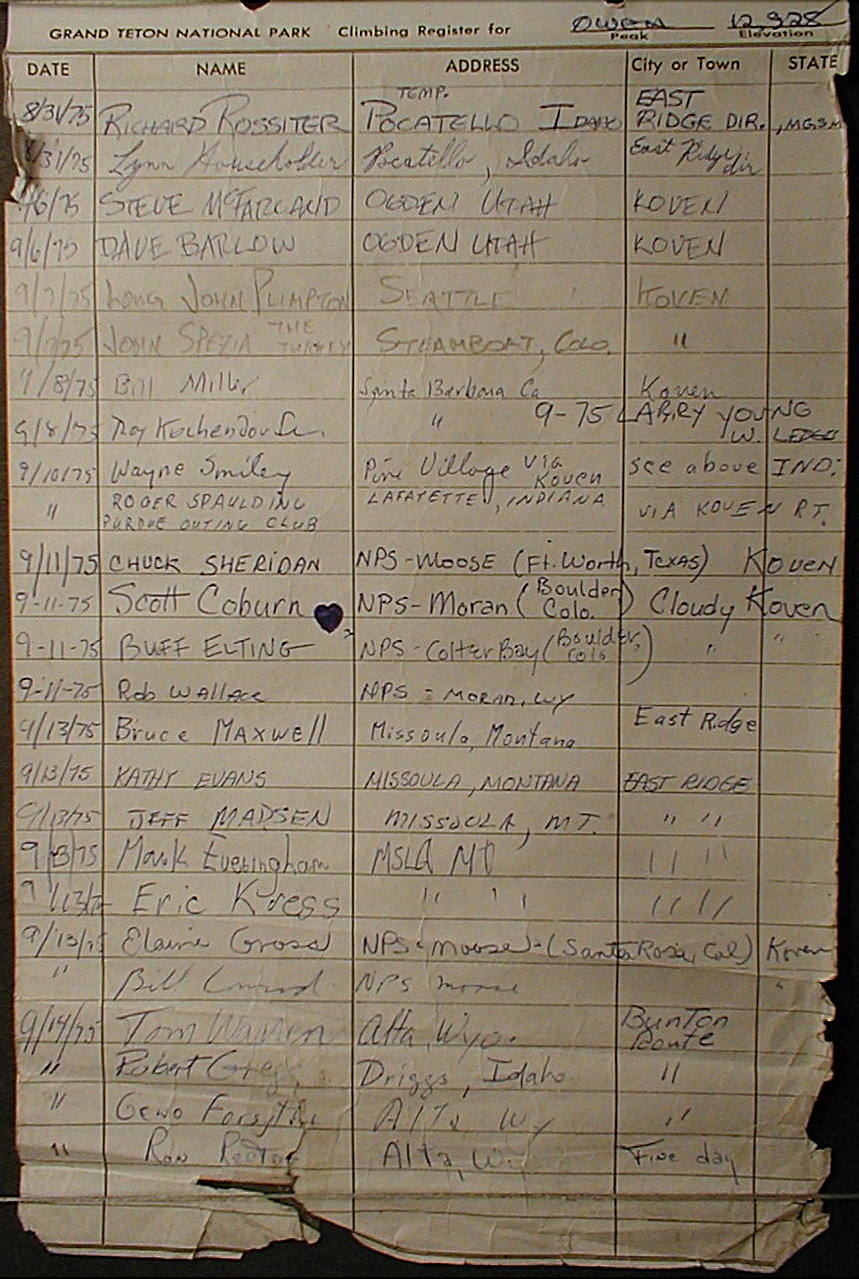 GRAND TETON NATIONAL PARK Climbing Register for OWEN 12,928
Peak Elevation
DATE NAME ADDRESS City or Town STATE
8/31/75 RICHARD ROSSITER TEMP. POCATELLO IDAHO EAST RIDGE DIR., MGSM
8/31/75 Lynn Householder Pocatello, Idaho East Ridge dir
9/6/75 STEVE McFARLAND OGDEN UTAH KOVEN
9/6/75 DAVE BARLOW OGDEN UTAH KOVEN
9/7/75 LONG JOHN PLIMPTON SEATTLE KOVEN
9/7/75 JOHN SPEZIA THE TURKEY STEAMBOAT, COLO. "
9/8/75 Bill Miller Santa Barbara Ca Koven
9/8/75 Roy "
9-75 LARRY YOUNG
W. LEDGES
9/10/75 Wayne Smiley Pine Village via Koven see above IND.
" ROGER SPAULDING LAFAYETTE, INDIANA VIA KOVEN RT.
PURDUE OUTING CLUB
9/11/75 CHUCK SHERIDAN NPS-MOOSE (Ft. Worth, TEXAS) KOVEN
9-11-75 Scott Coburn NPS-Moran (Boulder Colo.) Cloudy Koven
9-11-75 BUFF ELTING NPS-Colter Bay (Boulder, Colo) " "
9-11-75 Rob Wallace NPS - MORAN, WY
9/13/75 Bruce Maxwell Missoula, Montana East Ridge
9/13/75 KATHY EVANS MISSOULA, MONTANA EAST RIDGE
9/13/75 JEFF MADSEN MISSOULA, MT. " "
9/13/75 Mark Everingham MSLA MT " "
9/13/75 Eric Kress " " " " "
9/13/75 Elaine Gross NPS-Moose-(Santa Rosa, Cal) Koven
" Bill Conrod NPS moose "
9/14/75 Tom Warren Alta, Wyo. Bunton Route
" Robert Driggs, Idaho "
" Geno Forsythe Alta Wy "
" Ron Alta, Wy Fine day